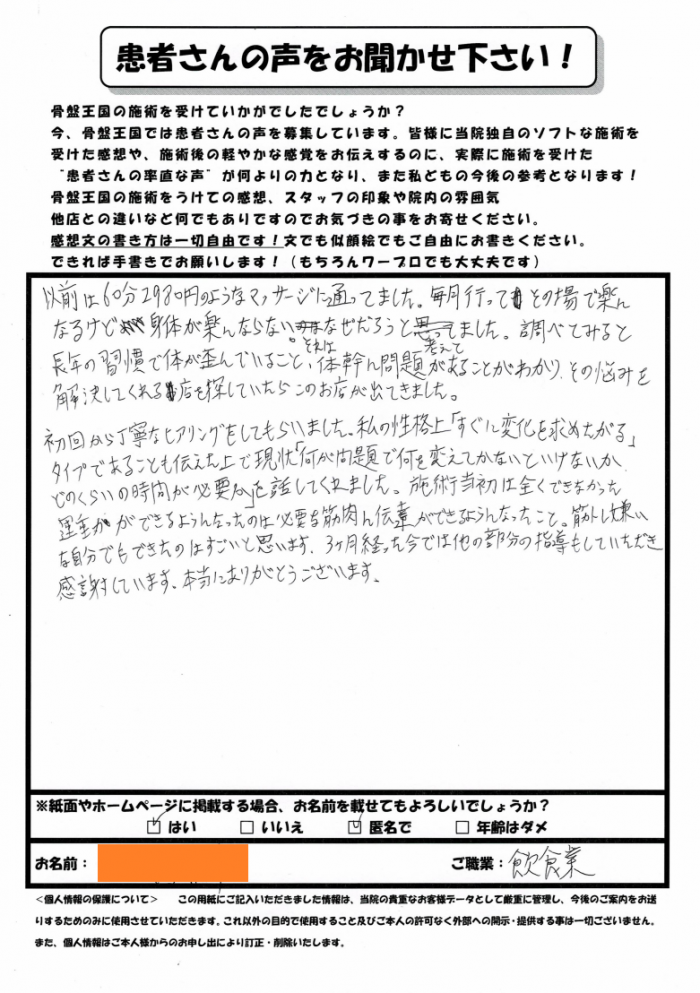 患者さんの声をお聞かせ下さい！
骨盤王国の施術を受けていかがでしたでしょうか？
今、骨盤王国では患者さんの声を募集しています。皆様に当院独自のソフトな施術を
受けた感想や、施術後の軽やかな感覚をお伝えするのに、実際に施術を受けた
"患者さんの率直な声"が何よりの力となり、また私どもの今後の参考となります！
骨盤王国の施術をうけての感想、スタッフの印象や院内の雰囲気
他店との違いなど何でもありですのでお気づきの事をお寄せください。
感想文の書き方は一切自由です！文でも似顔絵でもご自由にお書きください。
できれば手書きでお願いします！（もちろんワープロでも大丈夫です）
以前は60分2980円のようなマッサージに通ってました。毎月行ってもその場で楽に
なるけど身体が楽にならない。それはなぜだろうと考えてました。調べてみると
長年の習慣で体が歪んでいること、体幹に問題があることがわかり、その悩みを
解決してくれるお店を探していたらこのお店が出てきました。
初回から丁寧なヒアリングをしてもらいました。私の性格上「すぐに変化を求めたがる」
タイプであることも伝えた上で現状「何が問題で何を変えてかないといけないか、
どのくらいの時間が必要か」を話してくれました。施術当初は全くできなかった
運動ができるようになったのは必要な筋肉に伝達ができるようになったこと。筋トレ嫌い
な自分でもできたのはすごいと思います。3ヶ月経った今では他の部分の指導もしていただき
感謝しています。本当にありがとうございます。
※紙面やホームページに掲載する場合、お名前を載せてもよろしいでしょうか？
はい いいえ 匿名で 年齢はダメ
お名前： ご職業：飲食業
＜個人情報の保護について＞ この用紙にご記入いただきました情報は、当院の貴重なお客様データとして厳重に管理し、今後のご案内をお送
りするためのみに使用させていただきます。これ以外の目的で使用すること及びご本人の許可なく外部への開示・提供する事は一切ございません。
また、個人情報はご本人様からのお申し出により訂正・削除いたします。